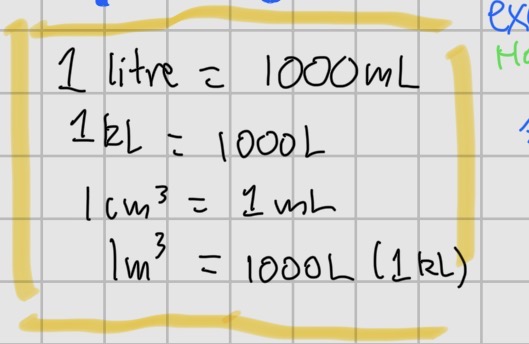 1 litre = 1000mL
1kL = 1000L
1cm³ = 1mL
1m³ = 1000L (1kL)